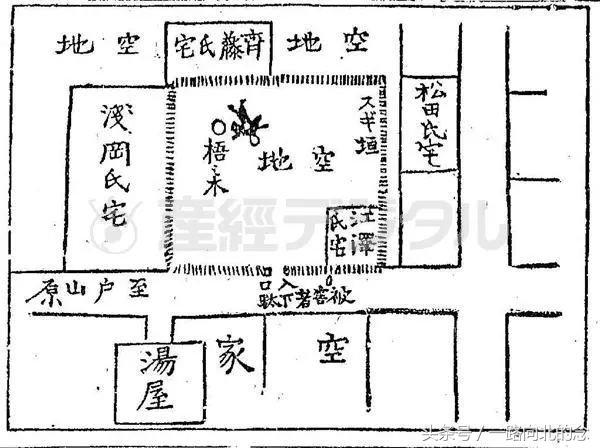 空地
齊藤氏宅
空地
松田氏宅
スギ垣
空地
梧ノ木
淺岡氏宅
江澤
氏宅
入口
被害者下駄
至戸山原
空家
湯屋
産經デジタル
头条号 / 一路向北的念